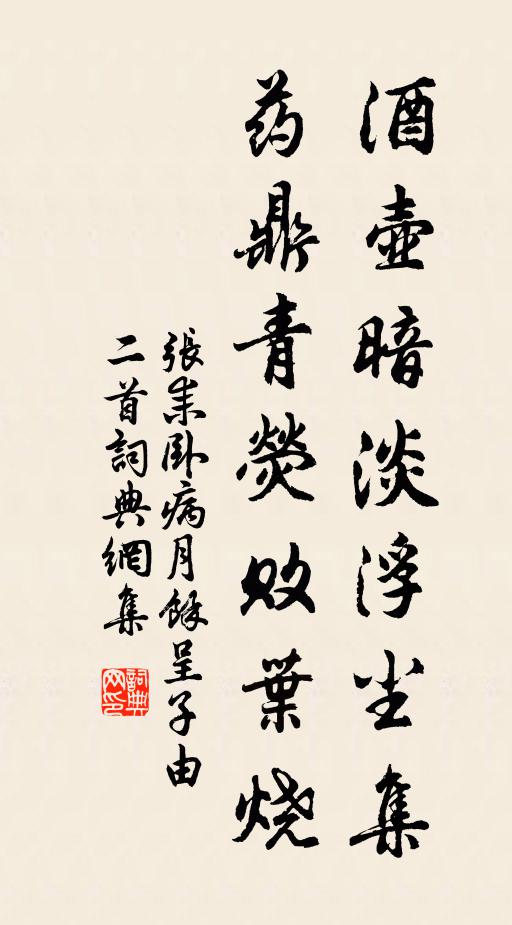 酒壺暗淡浮尘集
药鼎青熒敗葉烧
張耒卧病月餘呈子由
二首詞典網集
詞典
网印